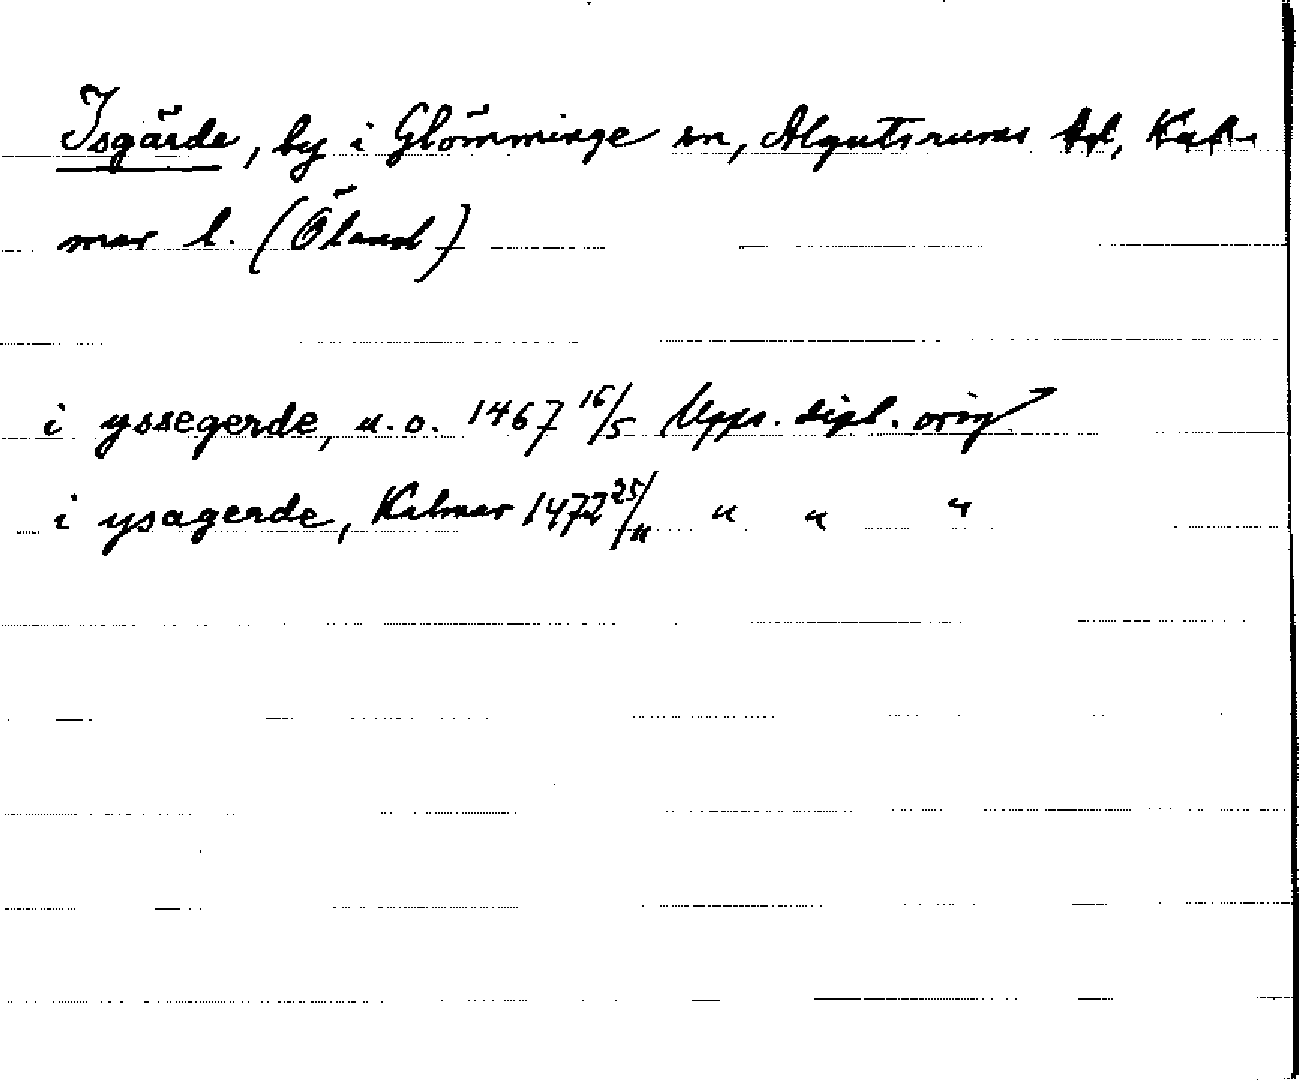 Isgärde, by i Glömminge sn, Algutsrums hd, Kal-
mar l. (Öland)
i yssegerde, u.o. 1467 16/5 Upps. dipl. orig
i ysagerde, Kalmar 1472 25/11 " " "